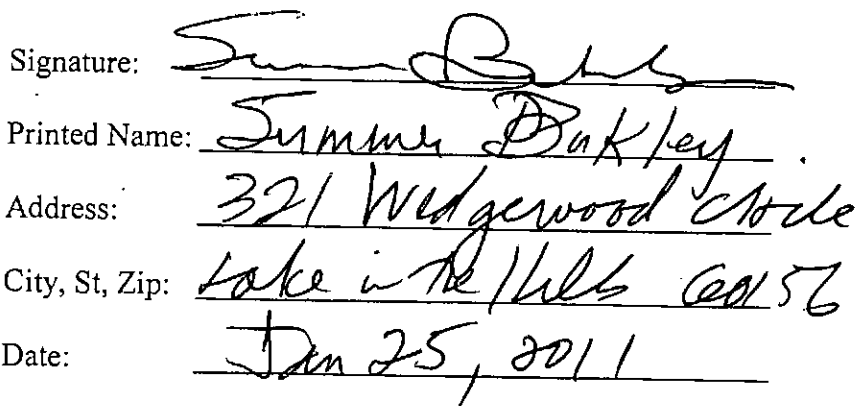 Signature:
Printed Name: Summer Binkley
Address: 321 Wedgewood Circle
City, St, Zip: Lake in the Hills 60156
Date: Jan 25, 2011